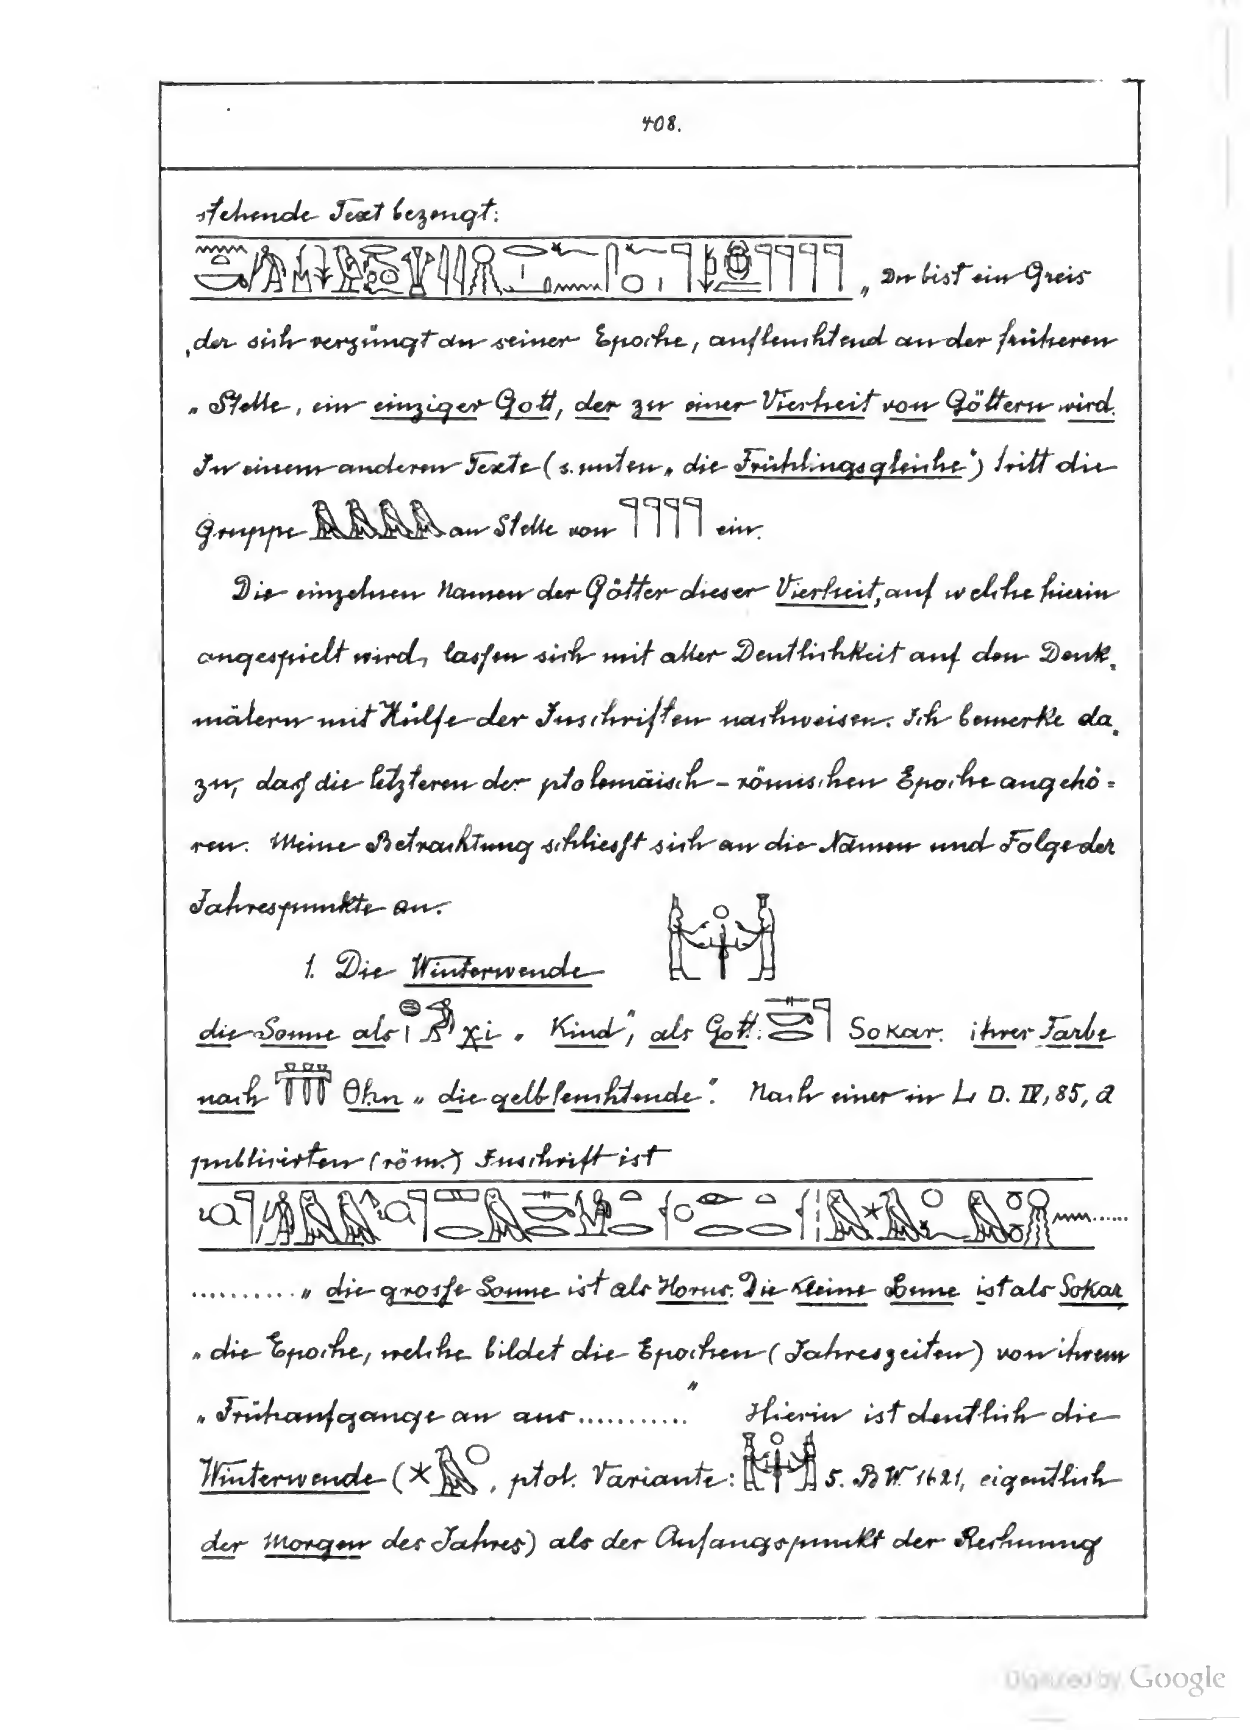 408.
stehende Text bezeugt:
„ Du bist ein Greis
„der sich verjüngt an seiner Epoche, aufleuchtend an der früheren
„ Stelle, ein einziger Gott, der zu einer Vierheit von Göttern wird.
In einem anderen Texte (s. unten „ die Frühlingsgleiche“) tritt die
Gruppe an Stelle von ein.
Die einzelnen Namen der Götter dieser Vierheit, auf welche hierin
angespielt wird, lassen sich mit aller Deutlichkeit auf den Denk-
mälern mit Hülfe der Inschriften nachweisen. Ich bemerke da-
zu, dass die letzteren der ptolemäisch-römischen Epoche angehö-
ren. Meine Betrachtung schliesst sich an die Namen und Folge der
Jahrespunkte an.
1. Die Winterwende
die Sonne als χi „ Kind“, als Gott: Sokar. ihrer Farbe
nach Θhn „ die gelb leuchtende“. Nach einer in L. D. IV, 85, a
publicirten (röm.) Inschrift ist
.......... „ die grosse Sonne ist als Horus. Die kleine Sonne ist als Sokar
„ die Epoche, welche bildet die Epochen (Jahreszeiten) von ihrem
„ Frühaufgange an aus ...........“ Hierin ist deutlich die
Winterwende ( , ptol. Variante: s. BW. 1621, eigentlich
der Morgen des Jahres) als der Anfangspunkt der Rechnung
Digitized by Google